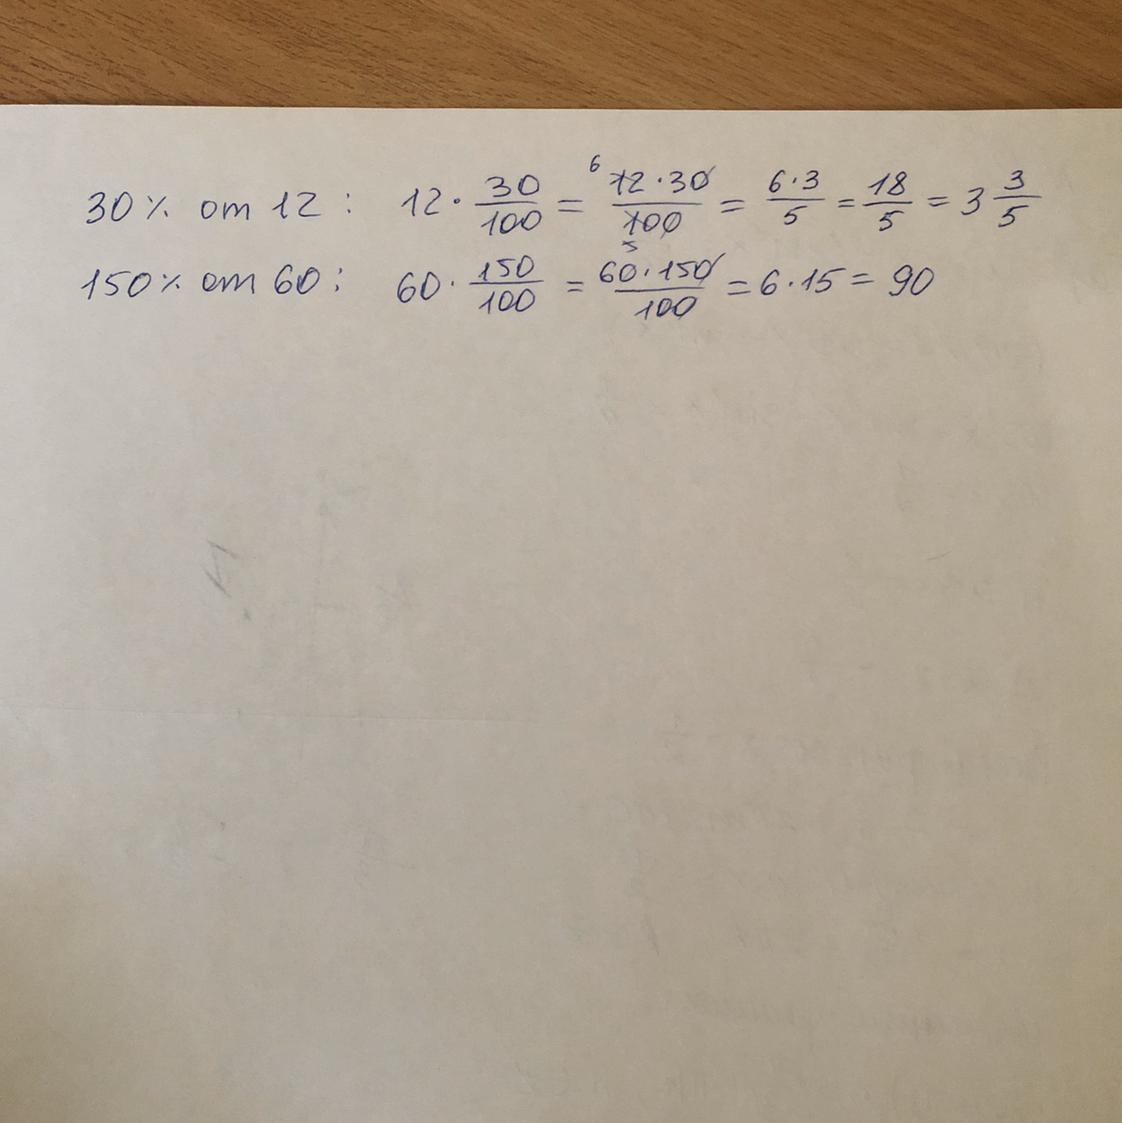 30% от 12 : 12 · 30/100 = 6 12 · 30/100 5 = 6·3/5 = 18/5 = 3 3/5
150% от 60 : 60 · 150/100 = 60 · 150/100 = 6 · 15 = 90